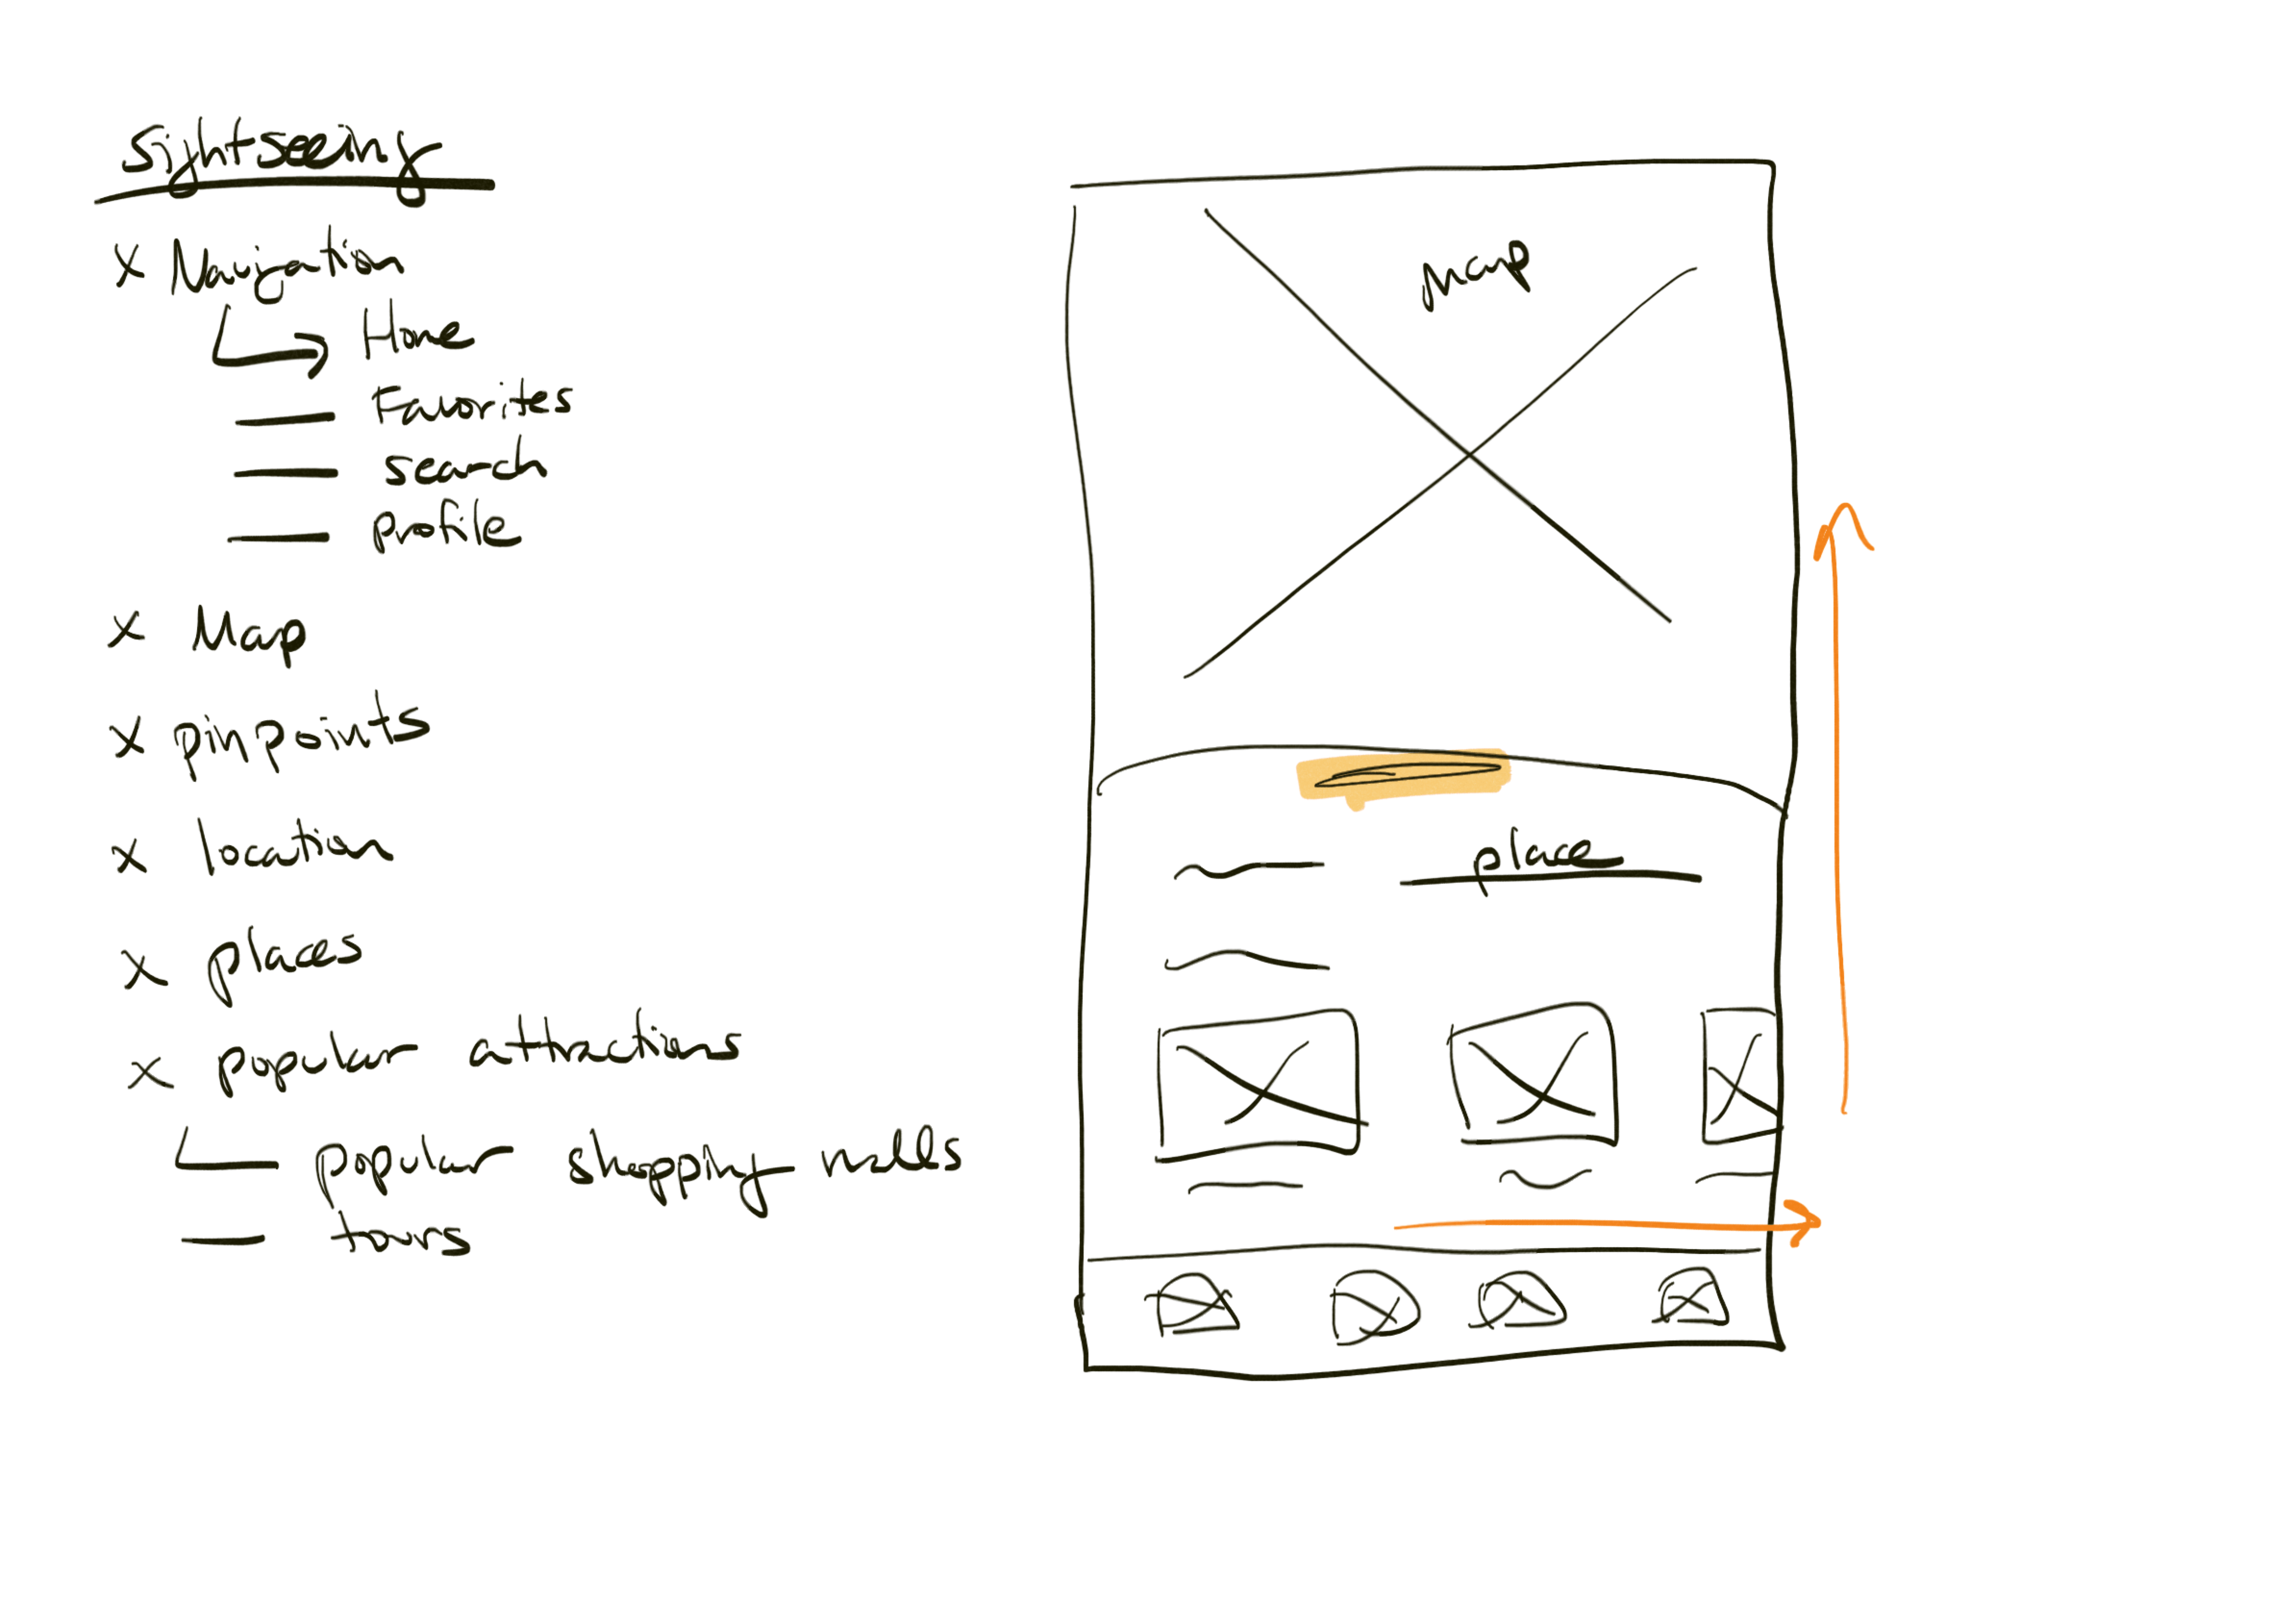 Sightseeing
x Navigation
Home
Favorites
search
profile
x Map
x pinpoints
x location
x places
x popular attractions
popular shopping malls
tours
Map
place